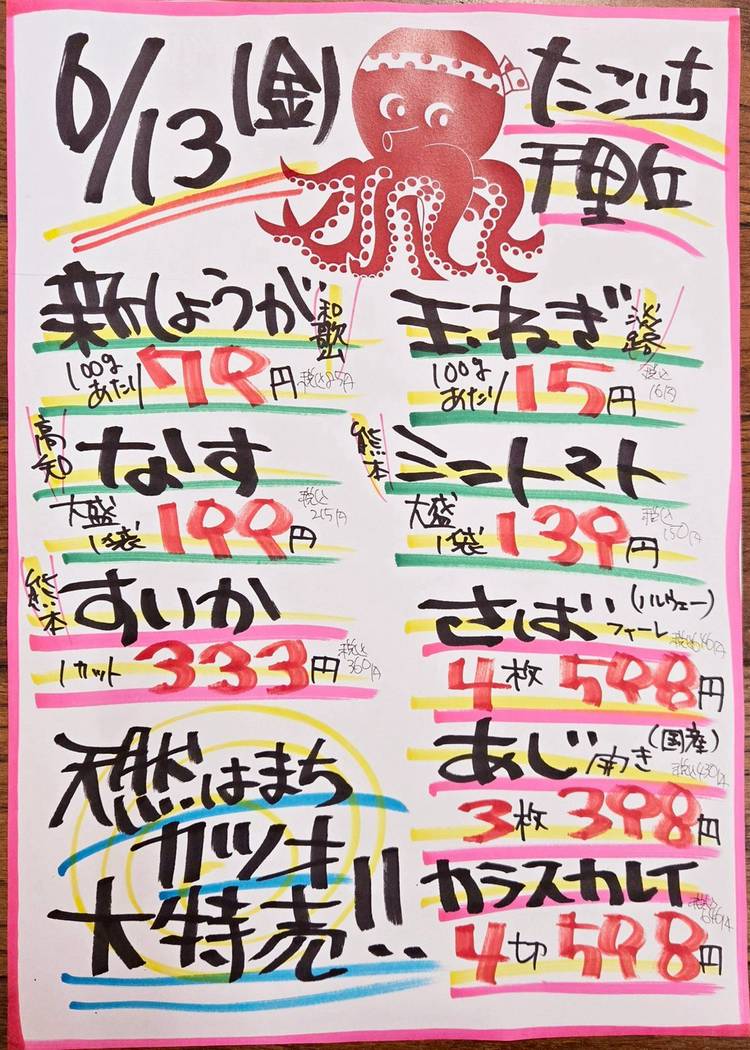 6/13(金)
たこいち
千里丘
新しょうが 和歌山
100gあたり 79円 税込85円
玉ねぎ 淡路
100gあたり 15円 税込16円
高知 なす
大盛1袋 199円 税込215円
熊本 ミニトマト
大盛1袋 139円 税込150円
熊本 すいか
1カット 333円 税込360円
さばフィーレ (ノルウェー)
4枚 598円 税込646円
あじ開き (国産)
3枚 398円 税込430円
カラスカレイ
4切 598円 税込646円
天然はまち
カツオ
大特売!!